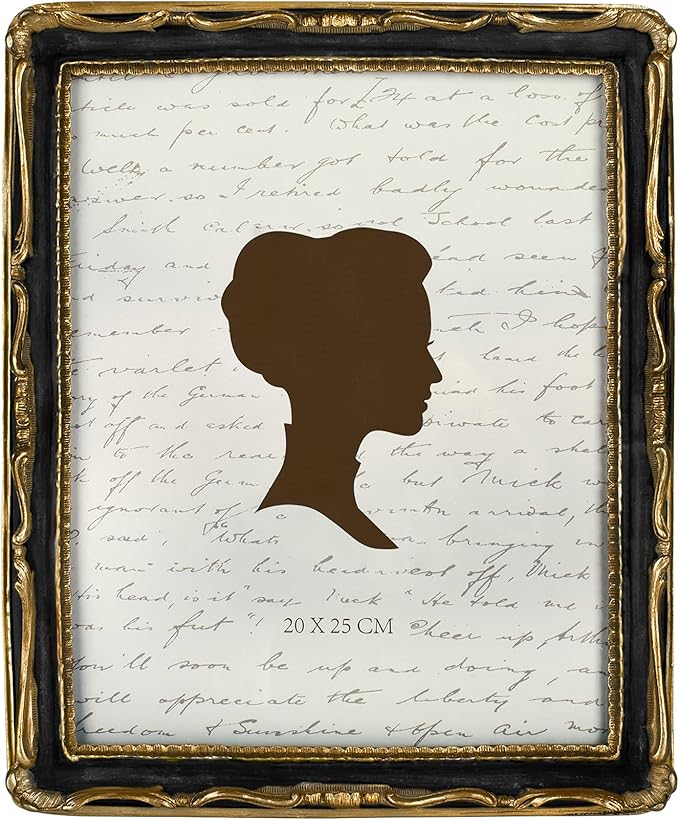 ticle was sold for £24 at a loss of
much per cent. What was the cost pr
Well, a number got told for the
answer. so I retired badly wounde
Smith so not School last
Friday and ead seen
and surviv ted him
emember I hop
te varlet heard the
ry of the German ind his foot
st off and asked private to car
in to the rea the way a shel
k off the Germ but Mick w
ignorant of arrival, th
? said, Whats bringing in
man" with his off, Mick
His head, is it" say Mick "He told me
was his fut"! Cheer up, Arth
20 X 25 CM
you'll soon be up and doing, an
will appreciate the liberty and
freedom & Sunshine & Open Air mo